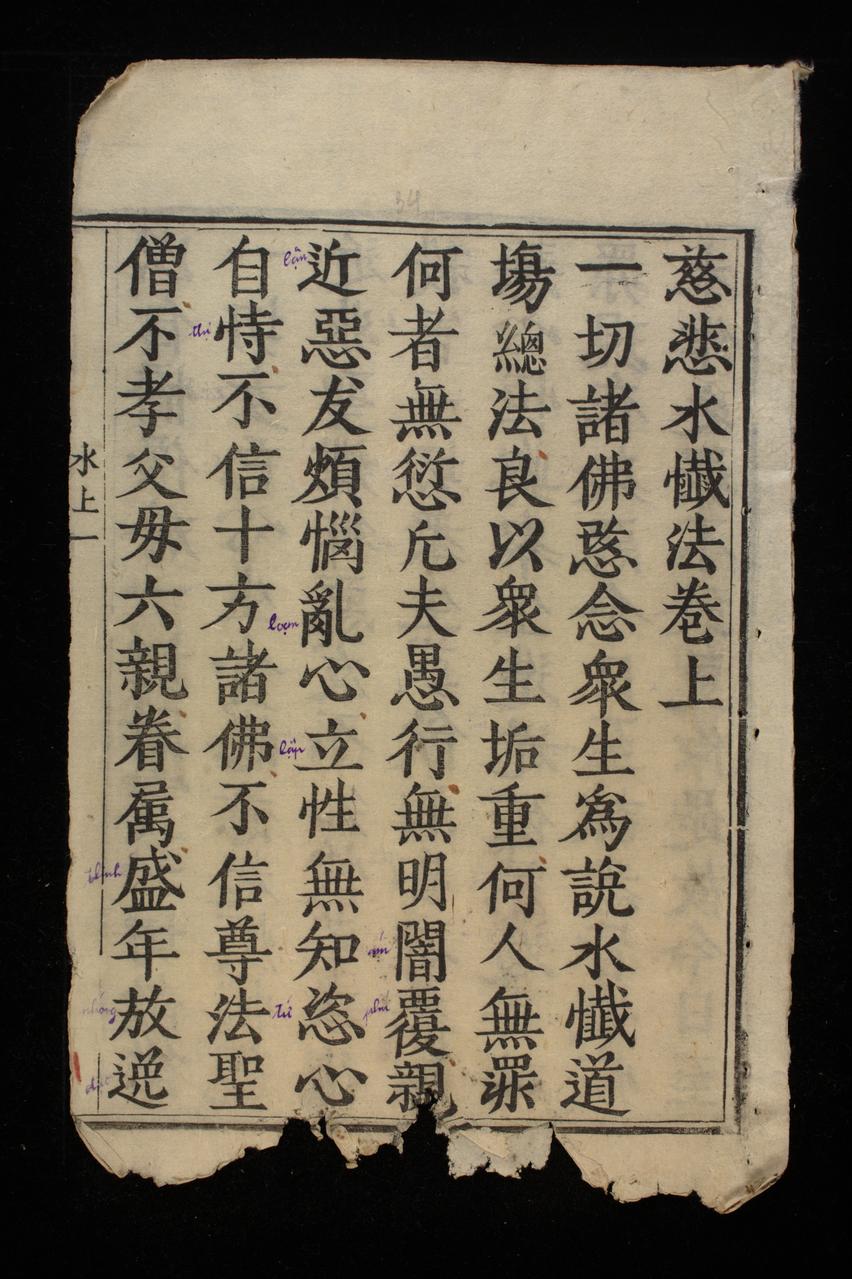 慈悲水懺法卷上
一切諸佛愍念衆生爲說水懺道
塲總法良以衆生垢重何人無罪
何者無愆凢夫愚行無明闇覆親
近惡友煩惱亂心立性無知恣心
自恃不信十方諸佛不信尊法聖
僧不孝父母六親眷属盛年放逆
水上一
34
cận
thị
loạn
lập
thịnh
ám
phú
tứ
phóng